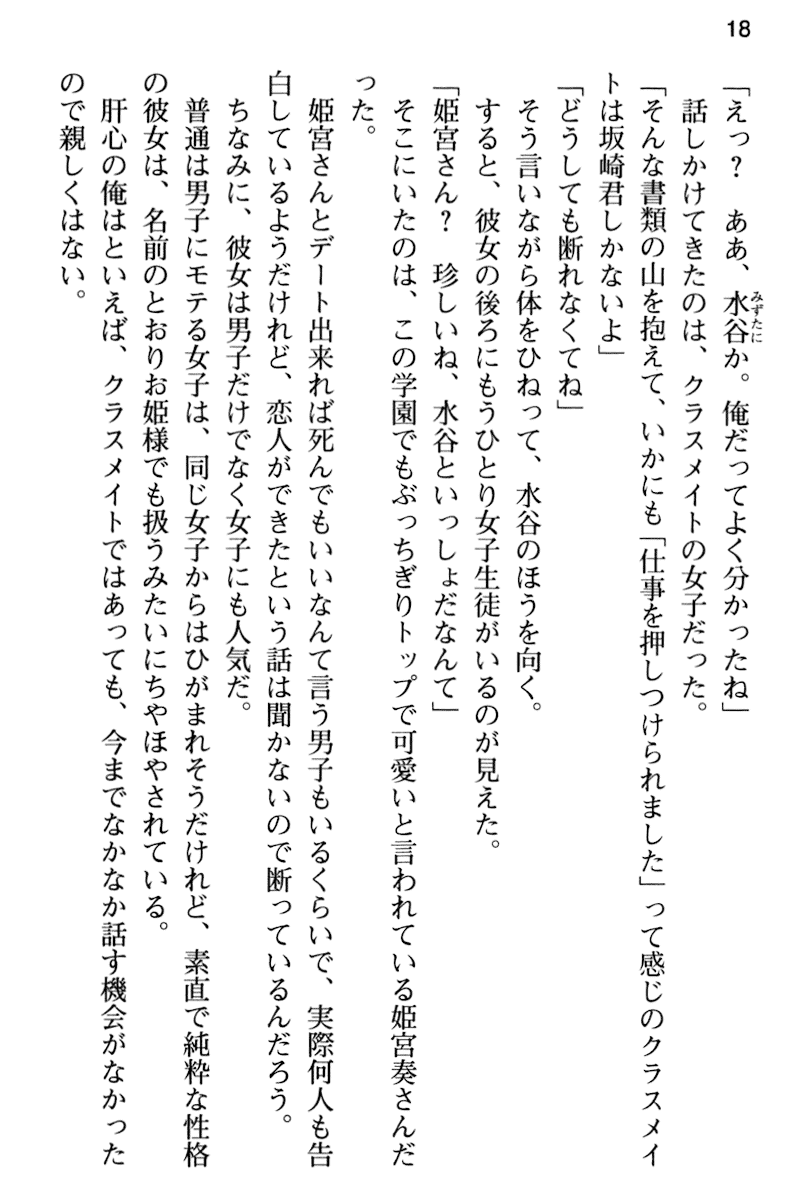 18
「えっ？　ああ、水谷か。俺だってよく分かったね」
みずたに
　話しかけてきたのは、クラスメイトの女子だった。
「そんな書類の山を抱えて、いかにも「仕事を押しつけられました」って感じのクラスメイ
トは坂崎君しかないよ」
「どうしても断れなくてね」
　そう言いながら体をひねって、水谷のほうを向く。
　すると、彼女の後ろにもうひとり女子生徒がいるのが見えた。
「姫宮さん？　珍しいね、水谷といっしょだなんて」
　そこにいたのは、この学園でもぶっちぎりトップで可愛いと言われている姫宮奏さんだ
った。
　姫宮さんとデート出来れば死んでもいいなんて言う男子もいるくらいで、実際何人も告
白しているようだけれど、恋人ができたという話は聞かないので断っているんだろう。
　ちなみに、彼女は男子だけでなく女子にも人気だ。
　普通は男子にモテる女子は、同じ女子からはひがまれそうだけれど、素直で純粋な性格
の彼女は、名前のとおりお姫様でも扱うみたいにちやほやされている。
　肝心の俺はといえば、クラスメイトではあっても、今までなかなか話す機会がなかった
ので親しくはない。